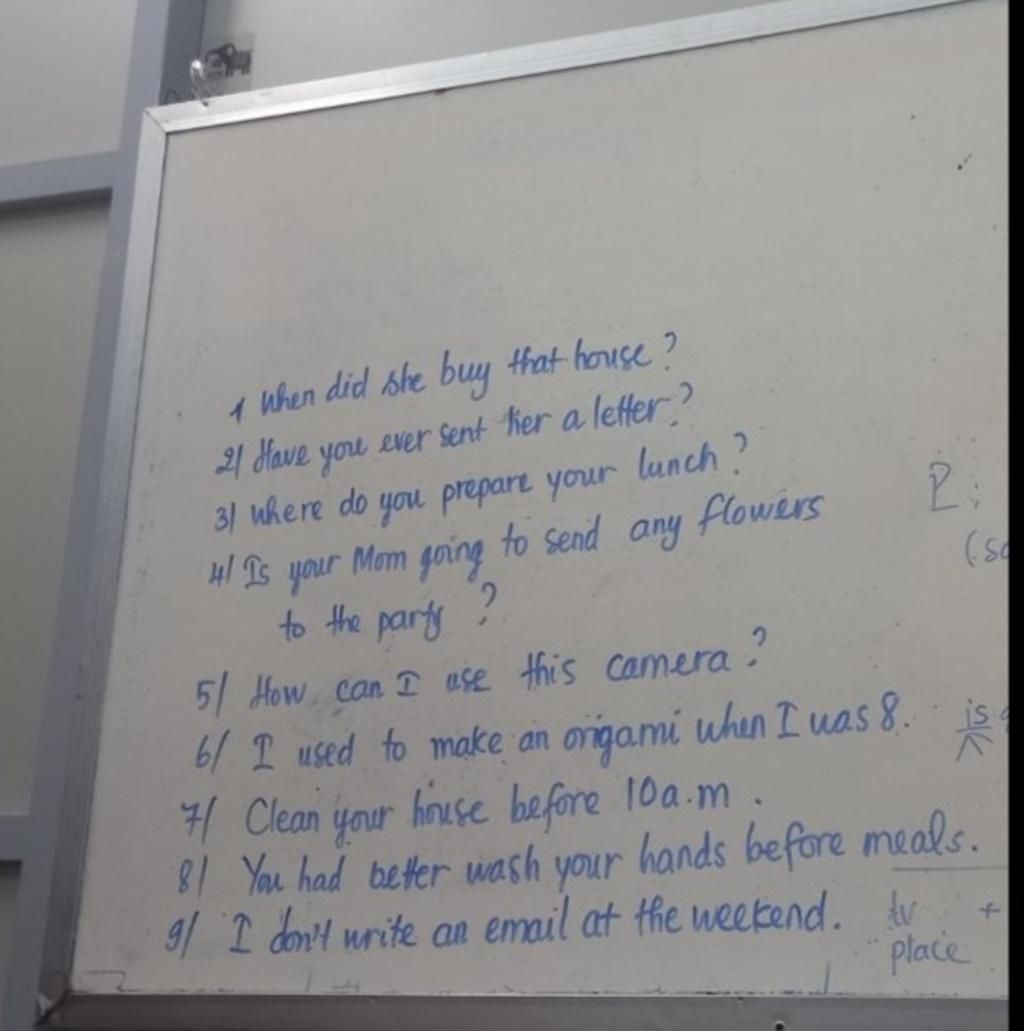 1 When did she buy that house?
2/ Have you ever sent her a letter?
3/ where do you prepare your lunch?
4/ Is your Mom going to send any flowers
to the party?
5/ How can I use this camera?
6/ I used to make an origami when I was 8.
7/ Clean your house before 10a.m.
8/ You had better wash your hands before meals.
9/ I don't write an email at the weekend.
P:
is
tv +
place